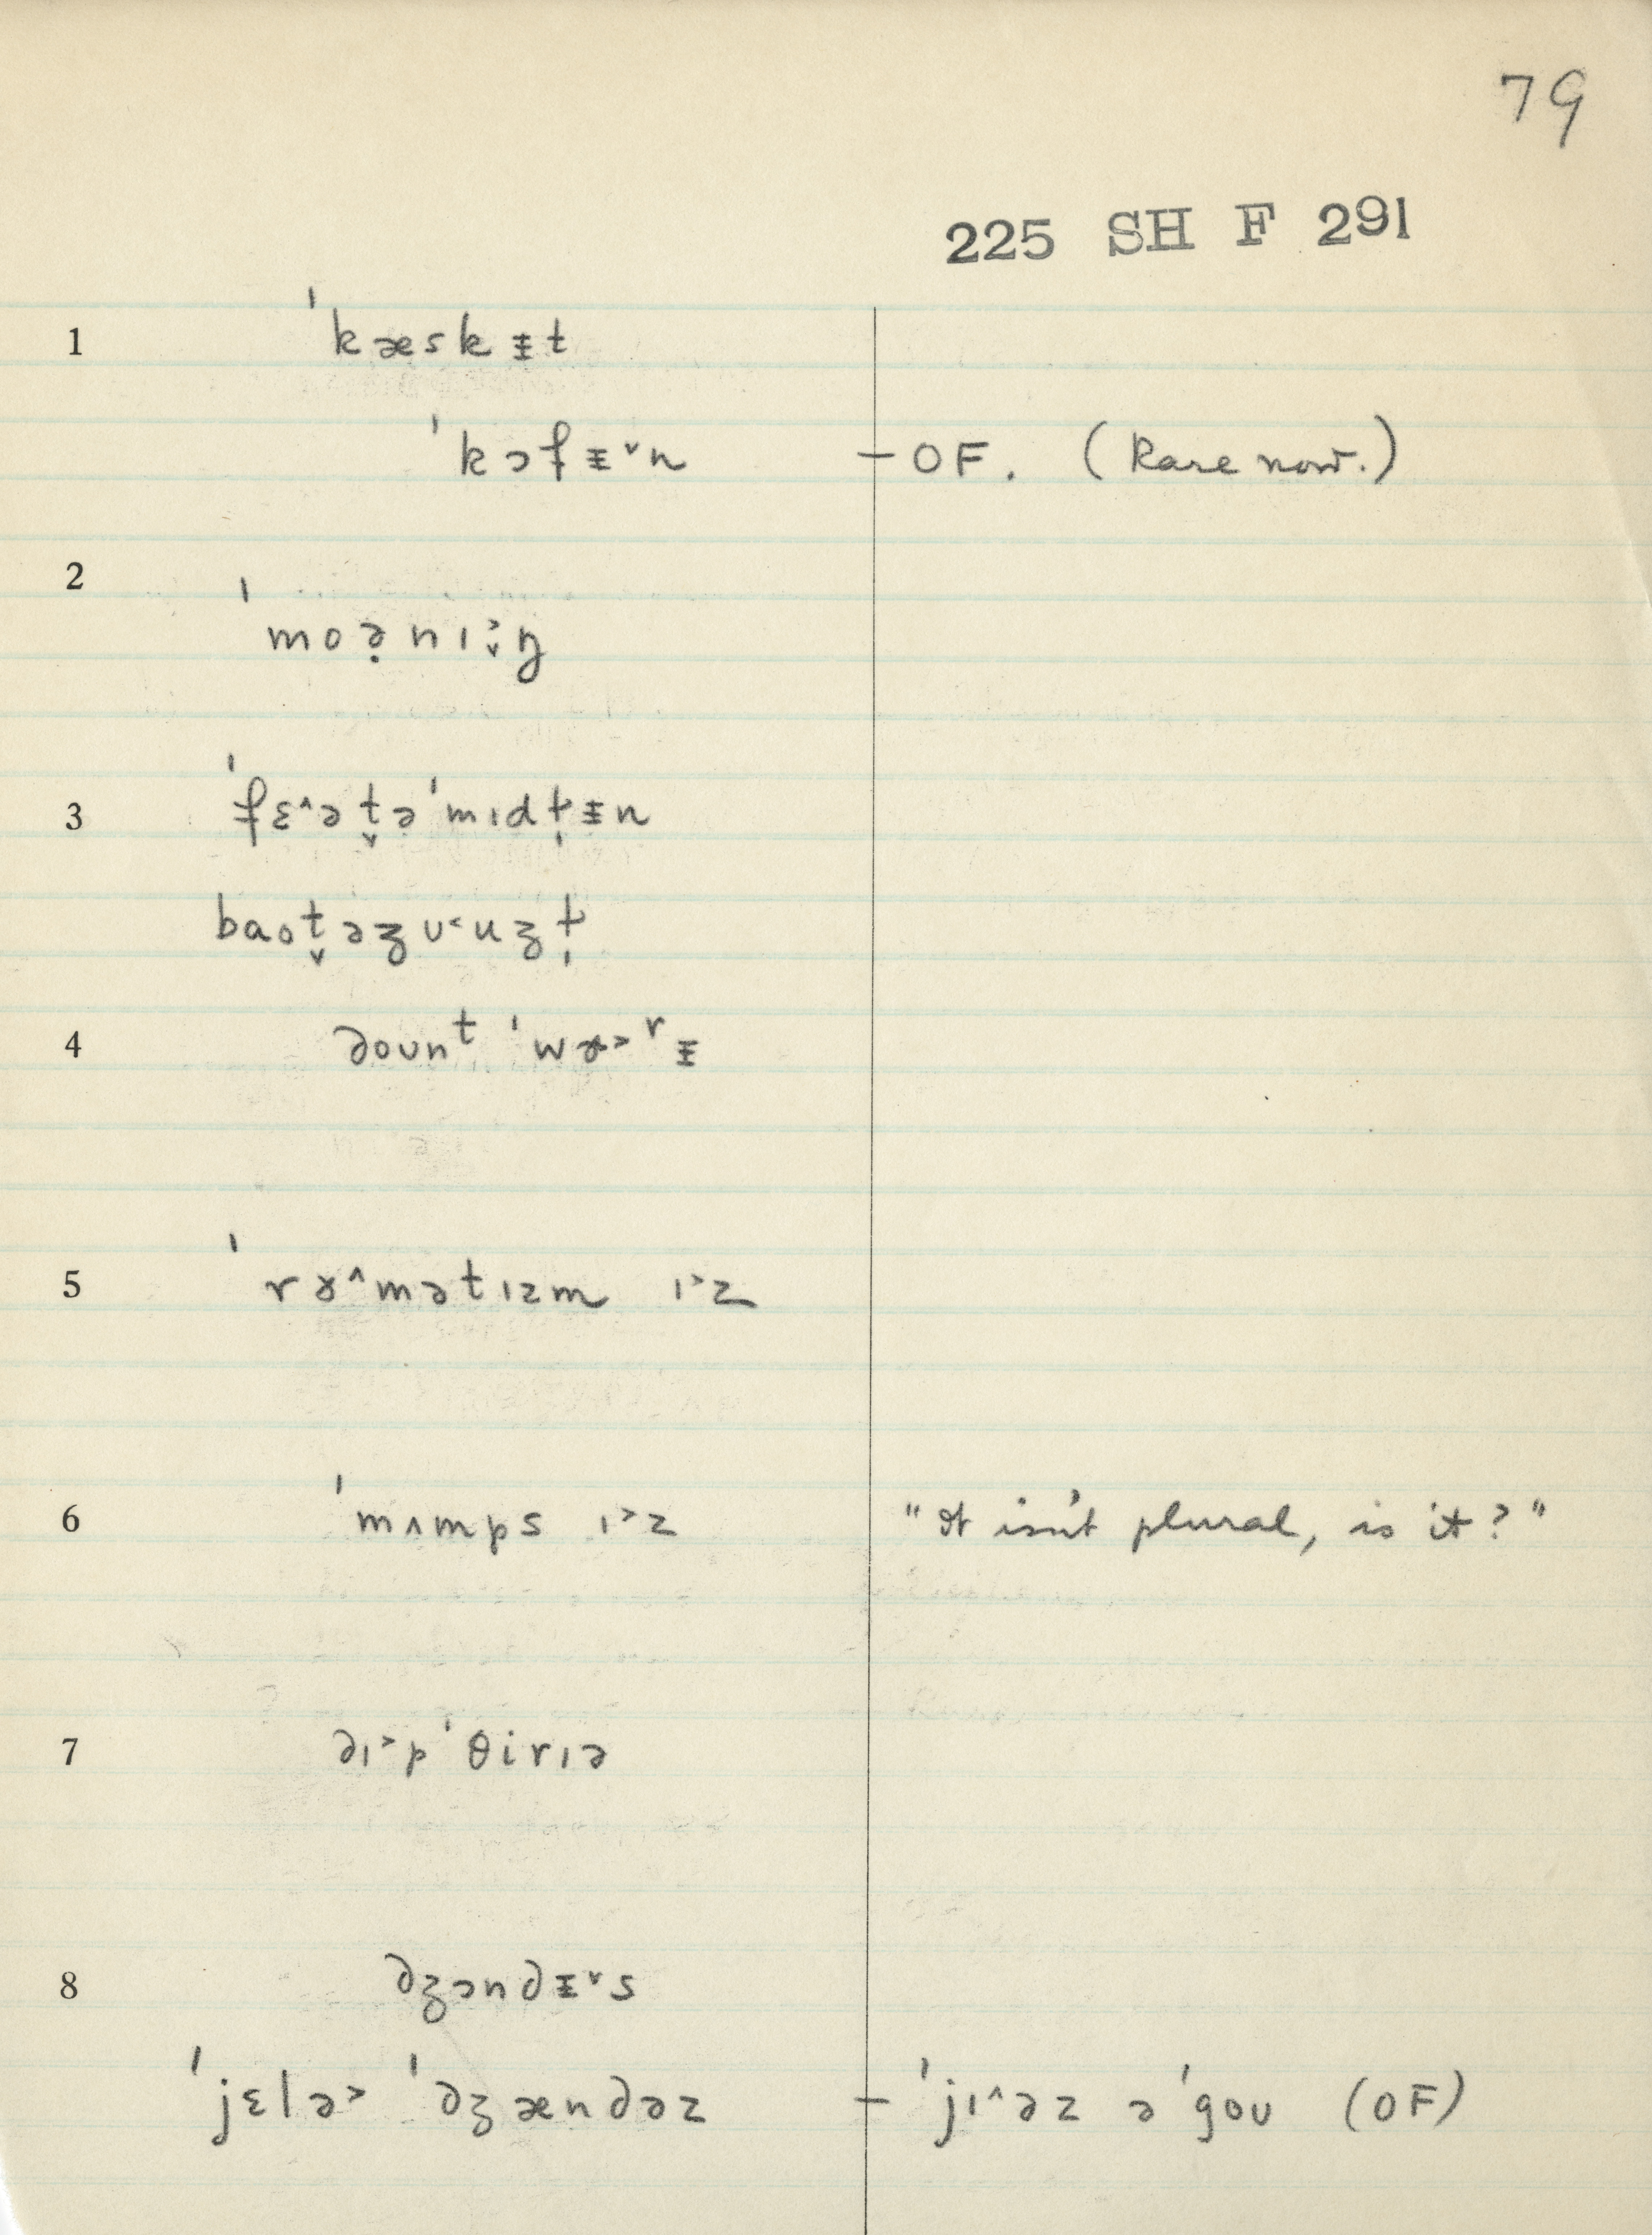 79
225 SH F 291
1 ˈkæskɪ̵t
ˈkɔfɪ̵˅n — OF. (Rare now.)
2 ˈmoə̣nɪ˃̬ŋ
3 ˈfɛ˄ət̬əˈmɪdt̩ɪ̵n
baot̬əʒʊ˂uʒt̩
4 dount ˈwɤ˃rɪ̵
5 ˈrɤ˄mətɪzm ɪ˃z
6 ˈmʌmps ɪ˃z "It isn't plural, is it?"
7 dɪ˃pˈθirɪə
8 dʒɔndɪ̵˅s
ˈjɛlə˃ ˈdʒændəz — ˈjɪ˄əz əˈgoʊ (OF)